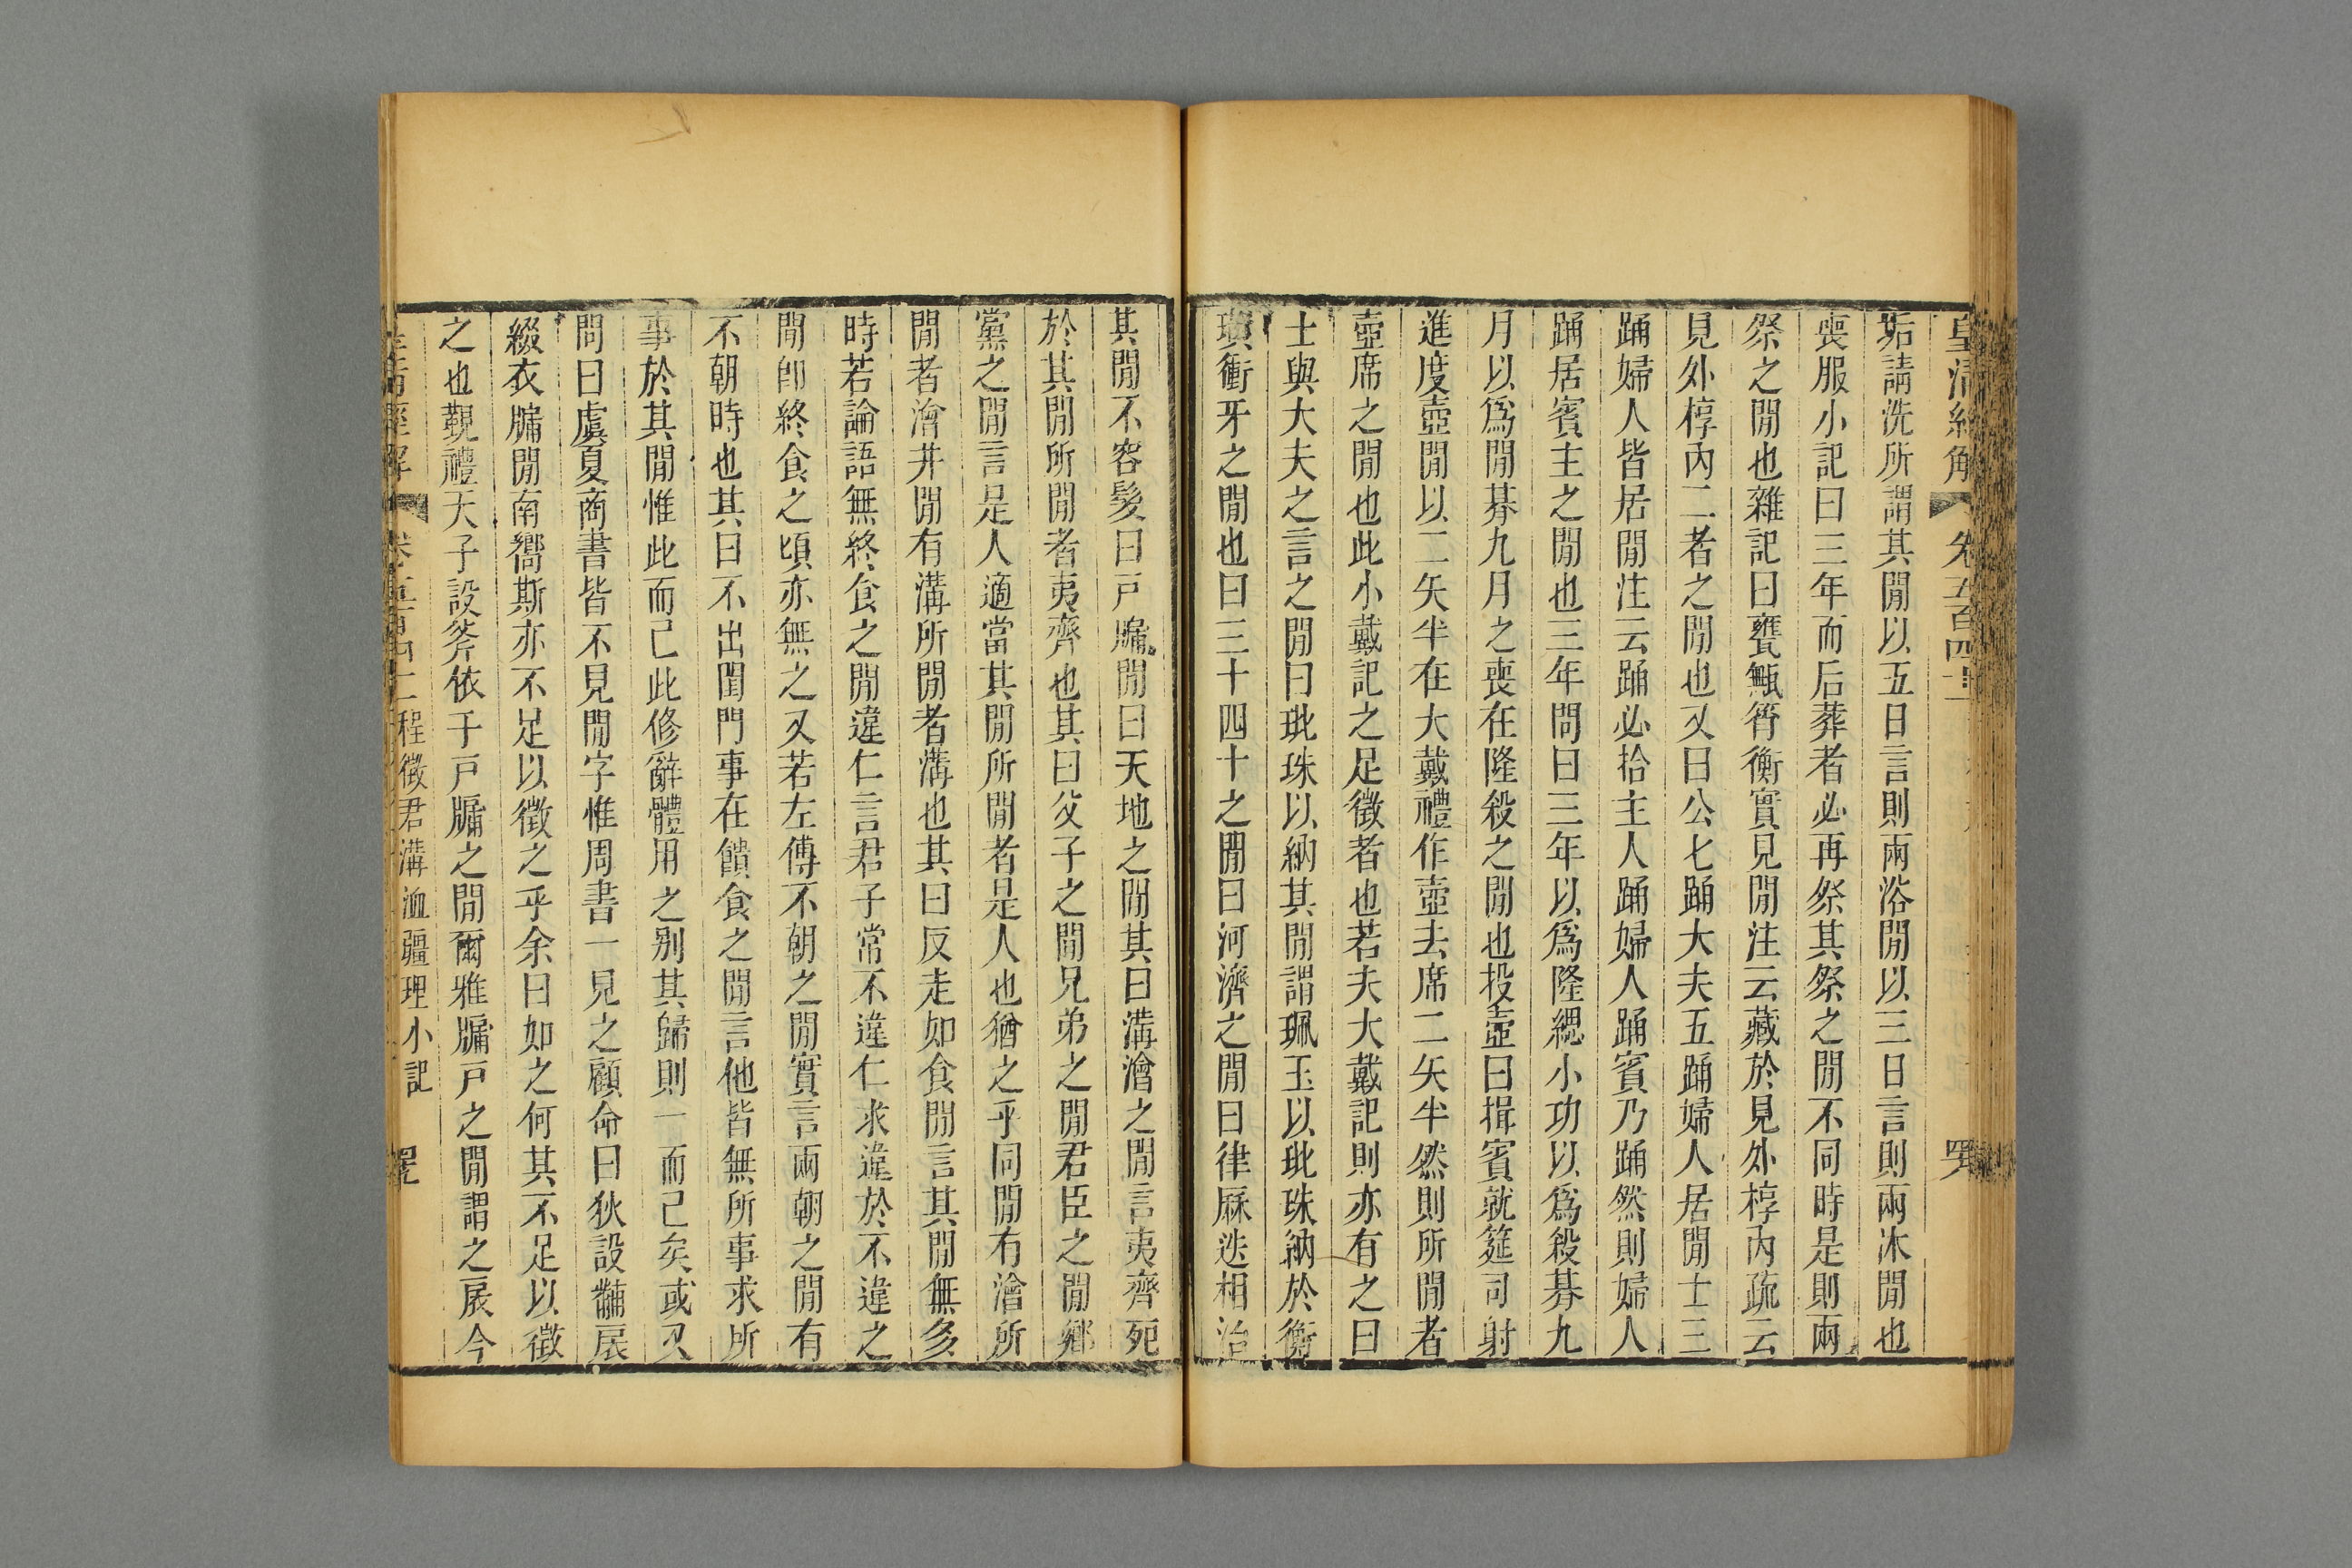 皇清經解 卷五百四十一
垢請洗所謂其閒以五日言則兩浴閒以三日言則兩沐閒也
喪服小記曰三年而后葬者必再祭其祭之閒不同時是則兩
祭之閒也雜記曰甕甒筲衡實見閒注云藏於見外椁內疏云
見外椁內二者之閒也又曰公七踊大夫五踊婦人居閒士三
踊婦人皆居閒注云踊必拾主人踊婦人踊賓乃踊然則婦人
踊居賓主之閒也三年問曰三年以爲隆緦小功以爲殺朞九
月以爲閒朞九月之喪在隆殺之閒也投壺曰揖賓就筵司射
進度壺閒以二矢半在大戴禮作壺去席二矢半然則所閒者
壺席之閒也此小戴記之足徵者也若夫大戴記則亦有之曰
士與大夫之言之閒曰玭珠以納其閒謂珮玉以玭珠納於衡
璜衝牙之閒也曰三十四十之閒曰河濟之閒曰律厤迭相治
其閒不容髮曰戸牖閒曰天地之閒其曰溝澮之閒言夷齊死
於其閒所閒者夷齊也其曰父子之閒兄弟之閒君臣之閒鄉
黨之閒言是人適當其閒所閒者是人也猶之乎同閒有澮所
閒者澮井閒有溝所閒者溝也其曰反走如食閒言其閒無多
時若論語無終食之閒違仁言君子常不違仁求違於不違之
閒卽終食之頃亦無之又若左傳不朝之閒實言兩朝之閒有
不朝時也其曰不出閨門事在饋食之閒言他皆無所事求所
事於其閒惟此而已此修辭體用之別其歸則一而已矣或又
問曰虞夏商書皆不見閒字惟周書一見之顧命曰狄設黼扆
綴衣牖閒南嚮斯亦不足以徵之乎余曰如之何其不足以徵
之也觀禮天子設斧依于戸牖之閒爾雅牖戸之閒謂之扆今
皇清經解 卷五百四十一 程徵君溝洫疆理小記